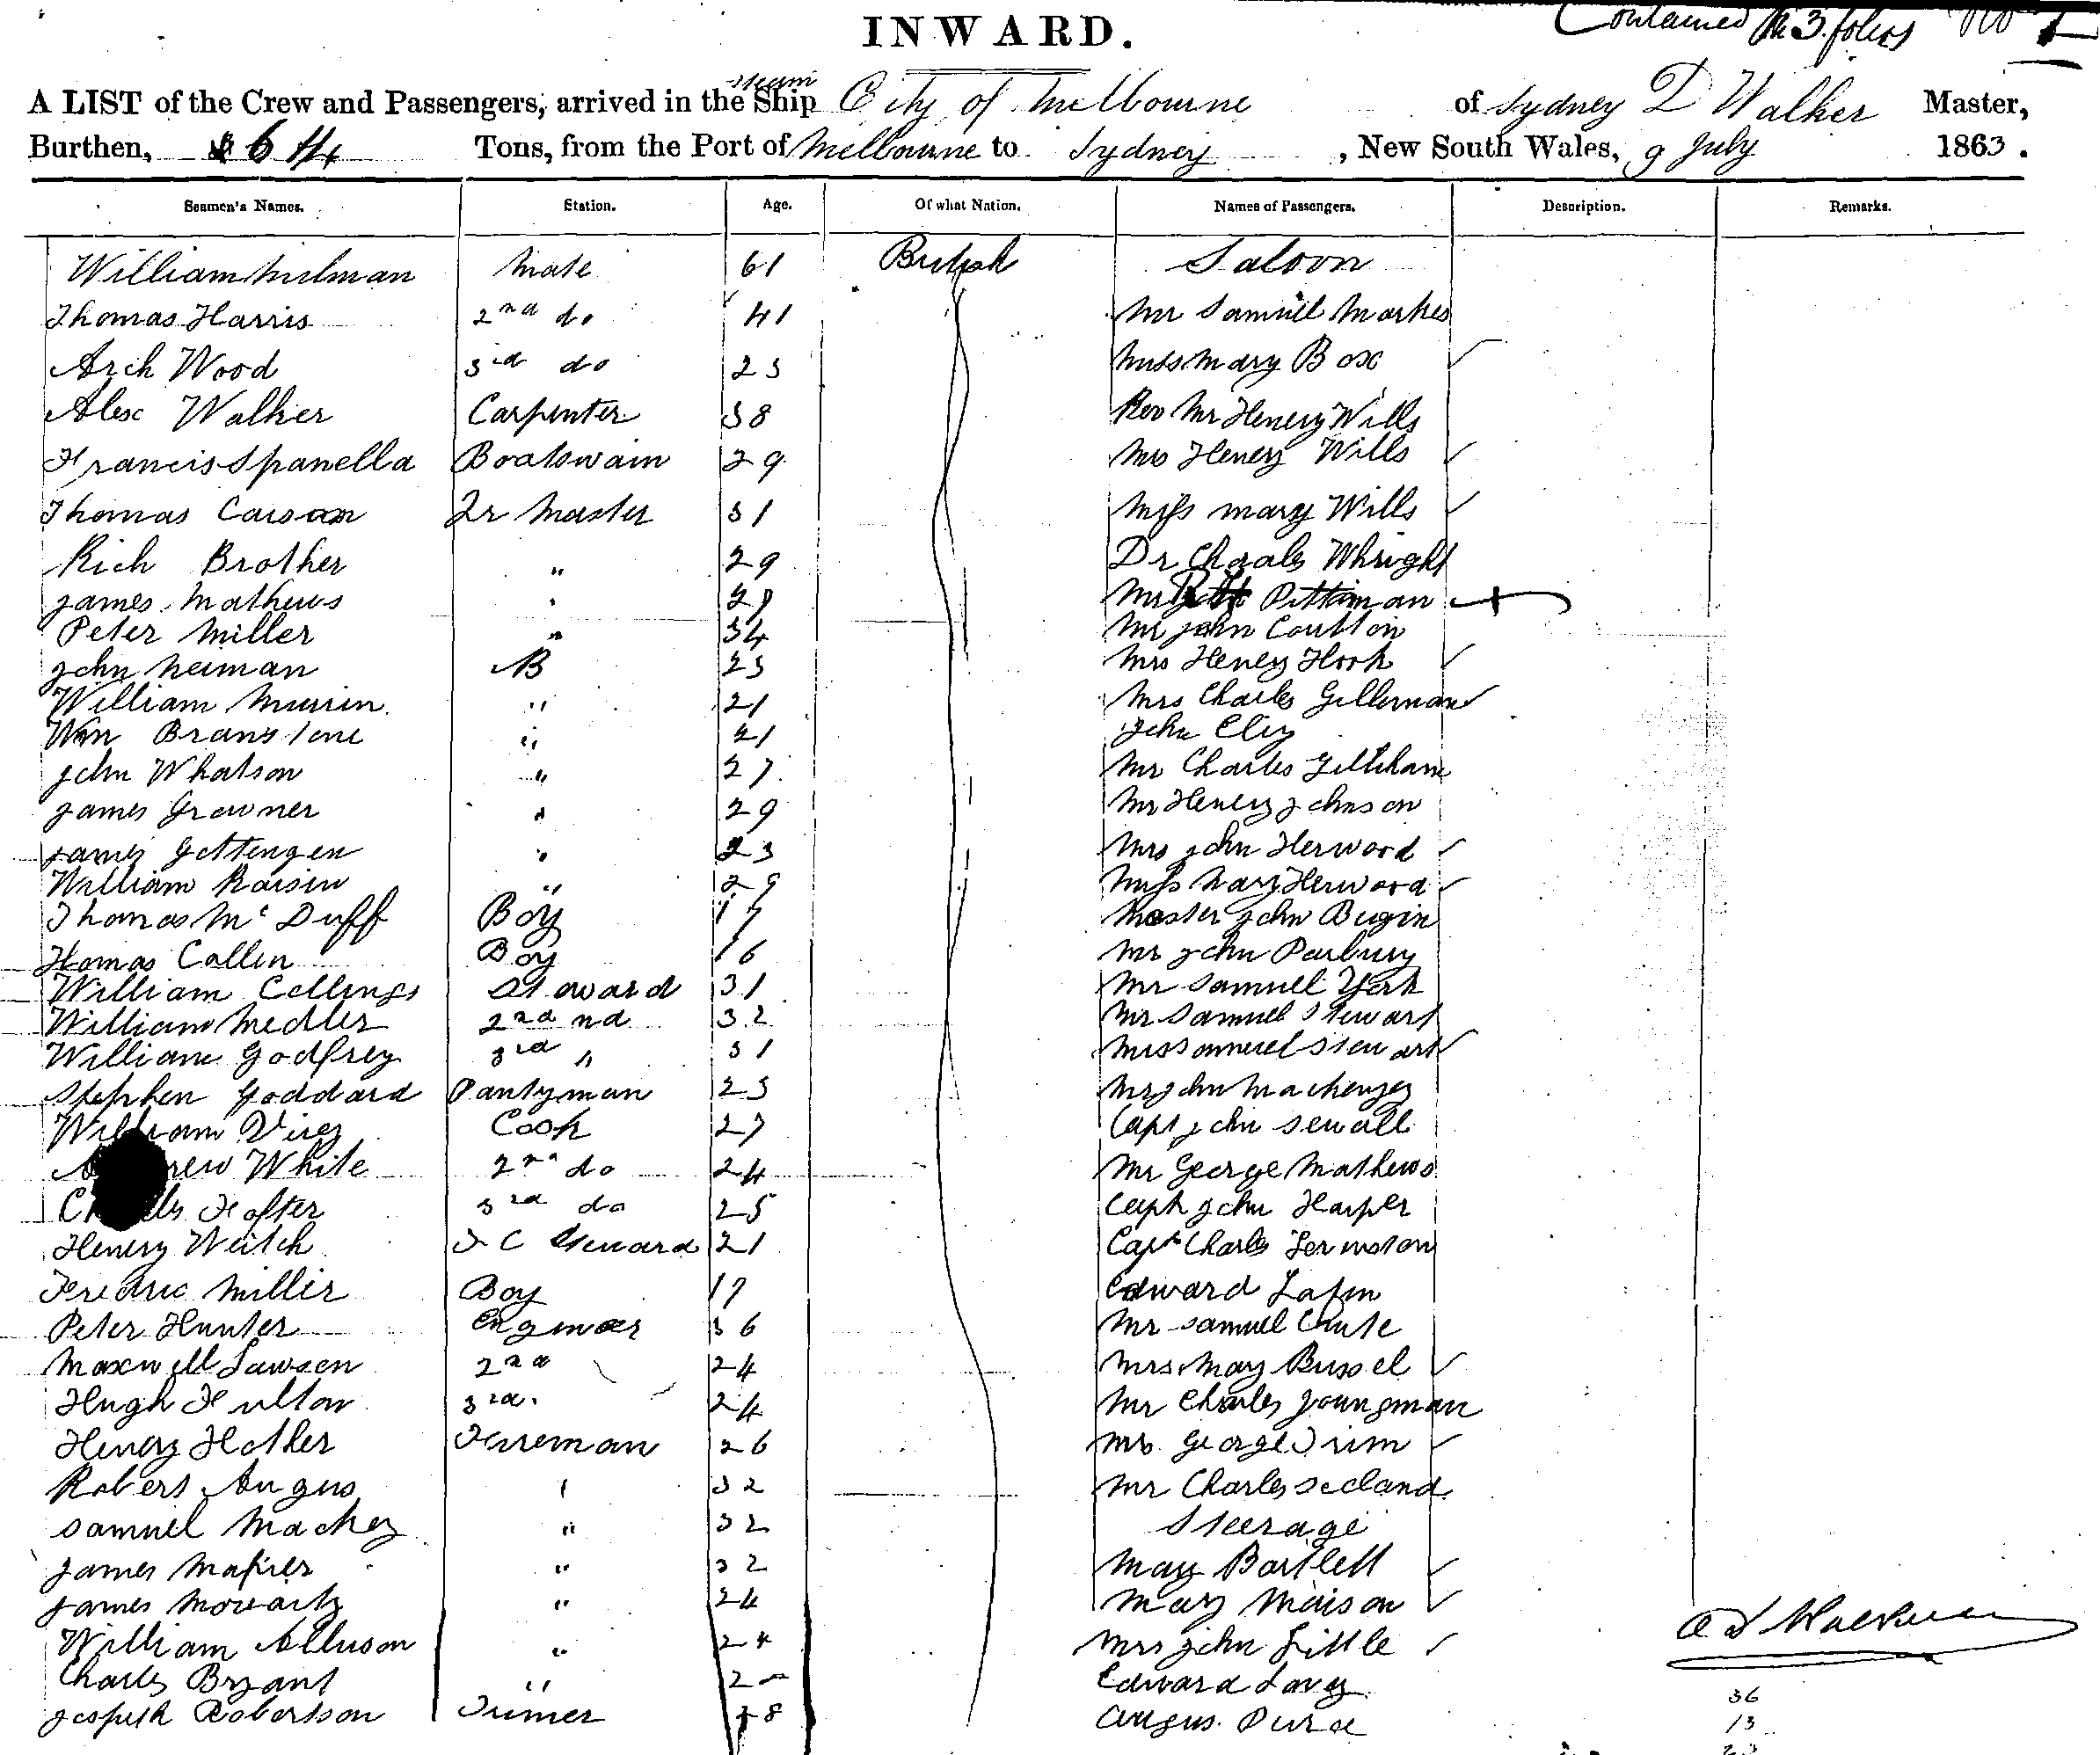 INWARD.
Contained in 3 folios No 1
A LIST of the Crew and Passengers, arrived in the Steam Ship City of Melbourne of Sydney D Walker Master,
Burthen, 614 Tons, from the Port of Melbourne to Sydney, New South Wales, 9 July 1863.
Seamen's Names. Station. Age. Of what Nation. Names of Passengers. Description. Remarks.
William Milman Mate 61 British Saloon
Thomas Harris 2nd do 41 Mr Samuel Markes
Arch Wood 3rd do 23 Miss Mary Box
Alex Walker Carpenter 38 Rev Mr Henery Wills
Francis Spanella Boatswain 29 Mrs Henery Wills
Thomas Carson Qr Master 31 Miss Mary Wills
Rich Brother " 29 Dr Charles Whright
James Mathews " Mr Pittman
Peter Miller " 34 Mr John Coutton
John Neiman AB 23 Mrs Henery Hook
William Murrin " 21 Mrs Charles Gillerman
Wm Branstone " 21 John Eley
John Whatson " 27 Mr Charles Gilliham
James Growner " 29 Mr Henery Johnson
James Gettengen " 23 Mrs John Herword
William Raisin " 29 Miss Mary Herword
Thomas Mc Duff Boy 17 Master John Bugin
Thomas Callin Boy 16 Mr John Parbury
William Collings Steward 31 Mr Samuel York
William Medler 2nd nd 32 Mr Samuel Stewart
William Godfrey 3rd " 31 Mrs Samuel Stewart
Stephen Goddard Pantyman 23 Mr John Mackenzey
William Cook 27 Capt John Sewall
White 2nd do 24 Mr George Mathews
Hofter 3rd do 25 Capt John Harper
Henery Weitch F C Steward 21 Capt Charles
Fredric Miller Boy 17 Edward
Peter Hunter Engineer 36 Mr Samuel Chute
Maxwell Lawson 2nd 24 Mrs Mary Russel
Hugh Hulton 3rd 24 Mr Charles Youngman
Henery Hother Fireman 26 Mrs George Trim
Robert Angus " 32 Mr Charles
Samuel Mackey " 32 Steerage
James " 32 Mary Bartlett
James Moriarty " 24 Mary Maison
William Allison " 24 Mrs John Little
Charles Bryant " 2 Edward Lavey
Joseph Robertson Trimer 18 Angus
36
13